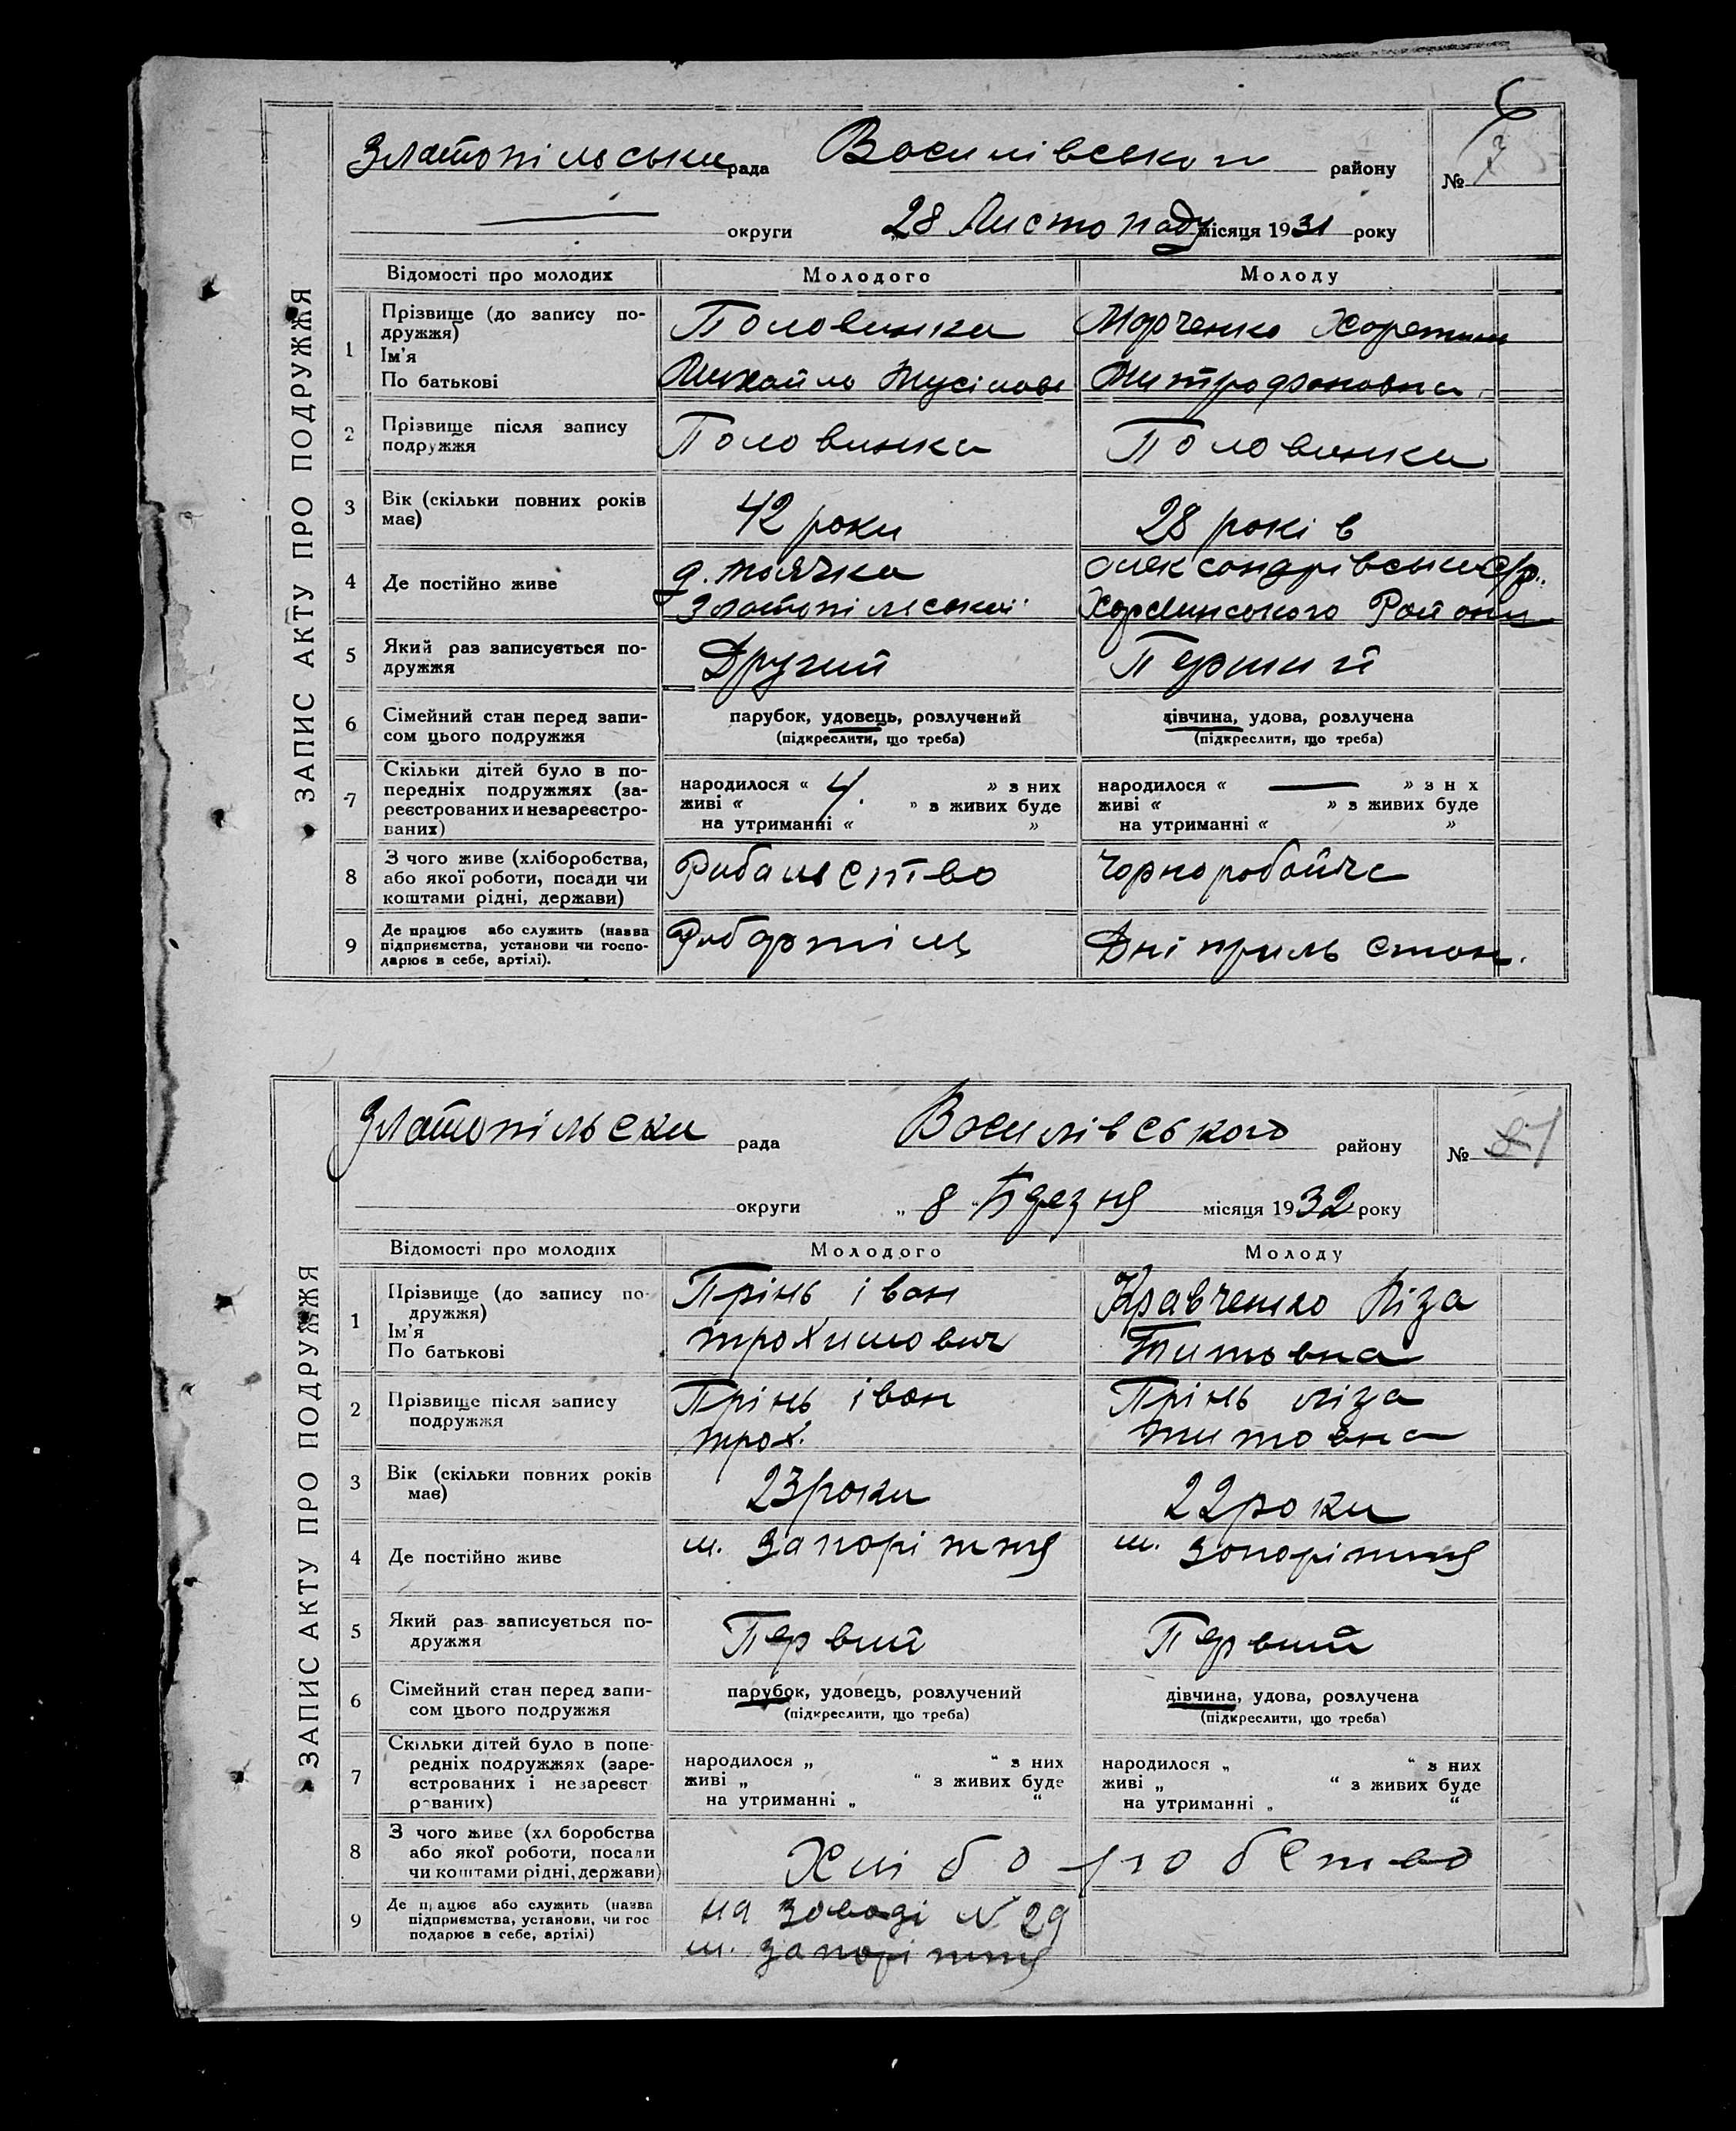 ЗАПИС АКТУ ПРО ПОДРУЖЖЯ
Златопільська рада Василівського району №
округи „28 Листопаду місяця 1931 року
Відомості про молодих Молодого Молоду
1 Прізвище (до запису по-
дружжя)
Ім'я
По батькові
Половинка
Михайло
Марченко
Митрофановна
2 Прізвище після запису
подружжя
Половинка
Половинка
3 Вік (скільки повних років
має)
42 роки
28 років
4 Де постійно живе
Златопільської
Олександрівська с/р.
Району
5 Який раз записується по-
дружжя
Другий
Перший
6 Сімейний стан перед запи-
сом цього подружжя
парубок, удовець, розлучений
(підкреслити, що треба)
дівчина, удова, розлучена
(підкреслити, що треба)
7 Скільки дітей було в по-
передніх подружжях (за-
реєстрованих и незареєстро-
ваних)
народилося « 4. » з них
живі « » з живих буде
на утриманні « »
народилося « — » з н х
живі « » з живих буде
на утриманні « »
8 З чого живе (хліборобства,
або якої роботи, посади чи
коштами рідні, держави)
Рибальство
Чорноробоча
9 Де працює або служить (назва
підприємства, установи чи госпо-
дарює в себе, артілі).
Рибартіль
ЗАПИС АКТУ ПРО ПОДРУЖЖЯ
Златопільска рада Василівського району №
округи „ 8 " Брезня місяця 1932 року
Відомості про молодих Молодого Молоду
1 Прізвище (до запису по-
дружжя)
Ім'я
По батькові
Прінь іван
трохимович
Кравченко Ліза
Титовна
2 Прізвище після запису
подружжя
Прінь іван
трох.
Прінь ліза
титовна
3 Вік (скільки повних років
має)
23 роки
22 роки
4 Де постійно живе
м. Запоріжжя
м. Запоріжжя
5 Який раз записується по-
дружжя
Первий
Первий
6 Сімейний стан перед запи-
сом цього подружжя
парубок, удовець, розлучений
(підкреслити, що треба)
дівчина, удова, розлучена
(підкреслити, що треба)
7 Скільки дітей було в попе-
редніх подружжях (заре-
єстрованих і незареєст
рованих)
народилося „ “ з них
живі „ “ з живих буде
на утриманні „ “
народилося „ “ з них
живі „ “ з живих буде
на утриманні „ “
8 З чого живе (хл боробства
або якої роботи, посади
чи коштами рідні, держави)
Хліборобство
9 Де працює або служить (назва
підприємства, установи, чи гос
подарює в себе, артілі)
на заводі № 29
м. запоріжжя